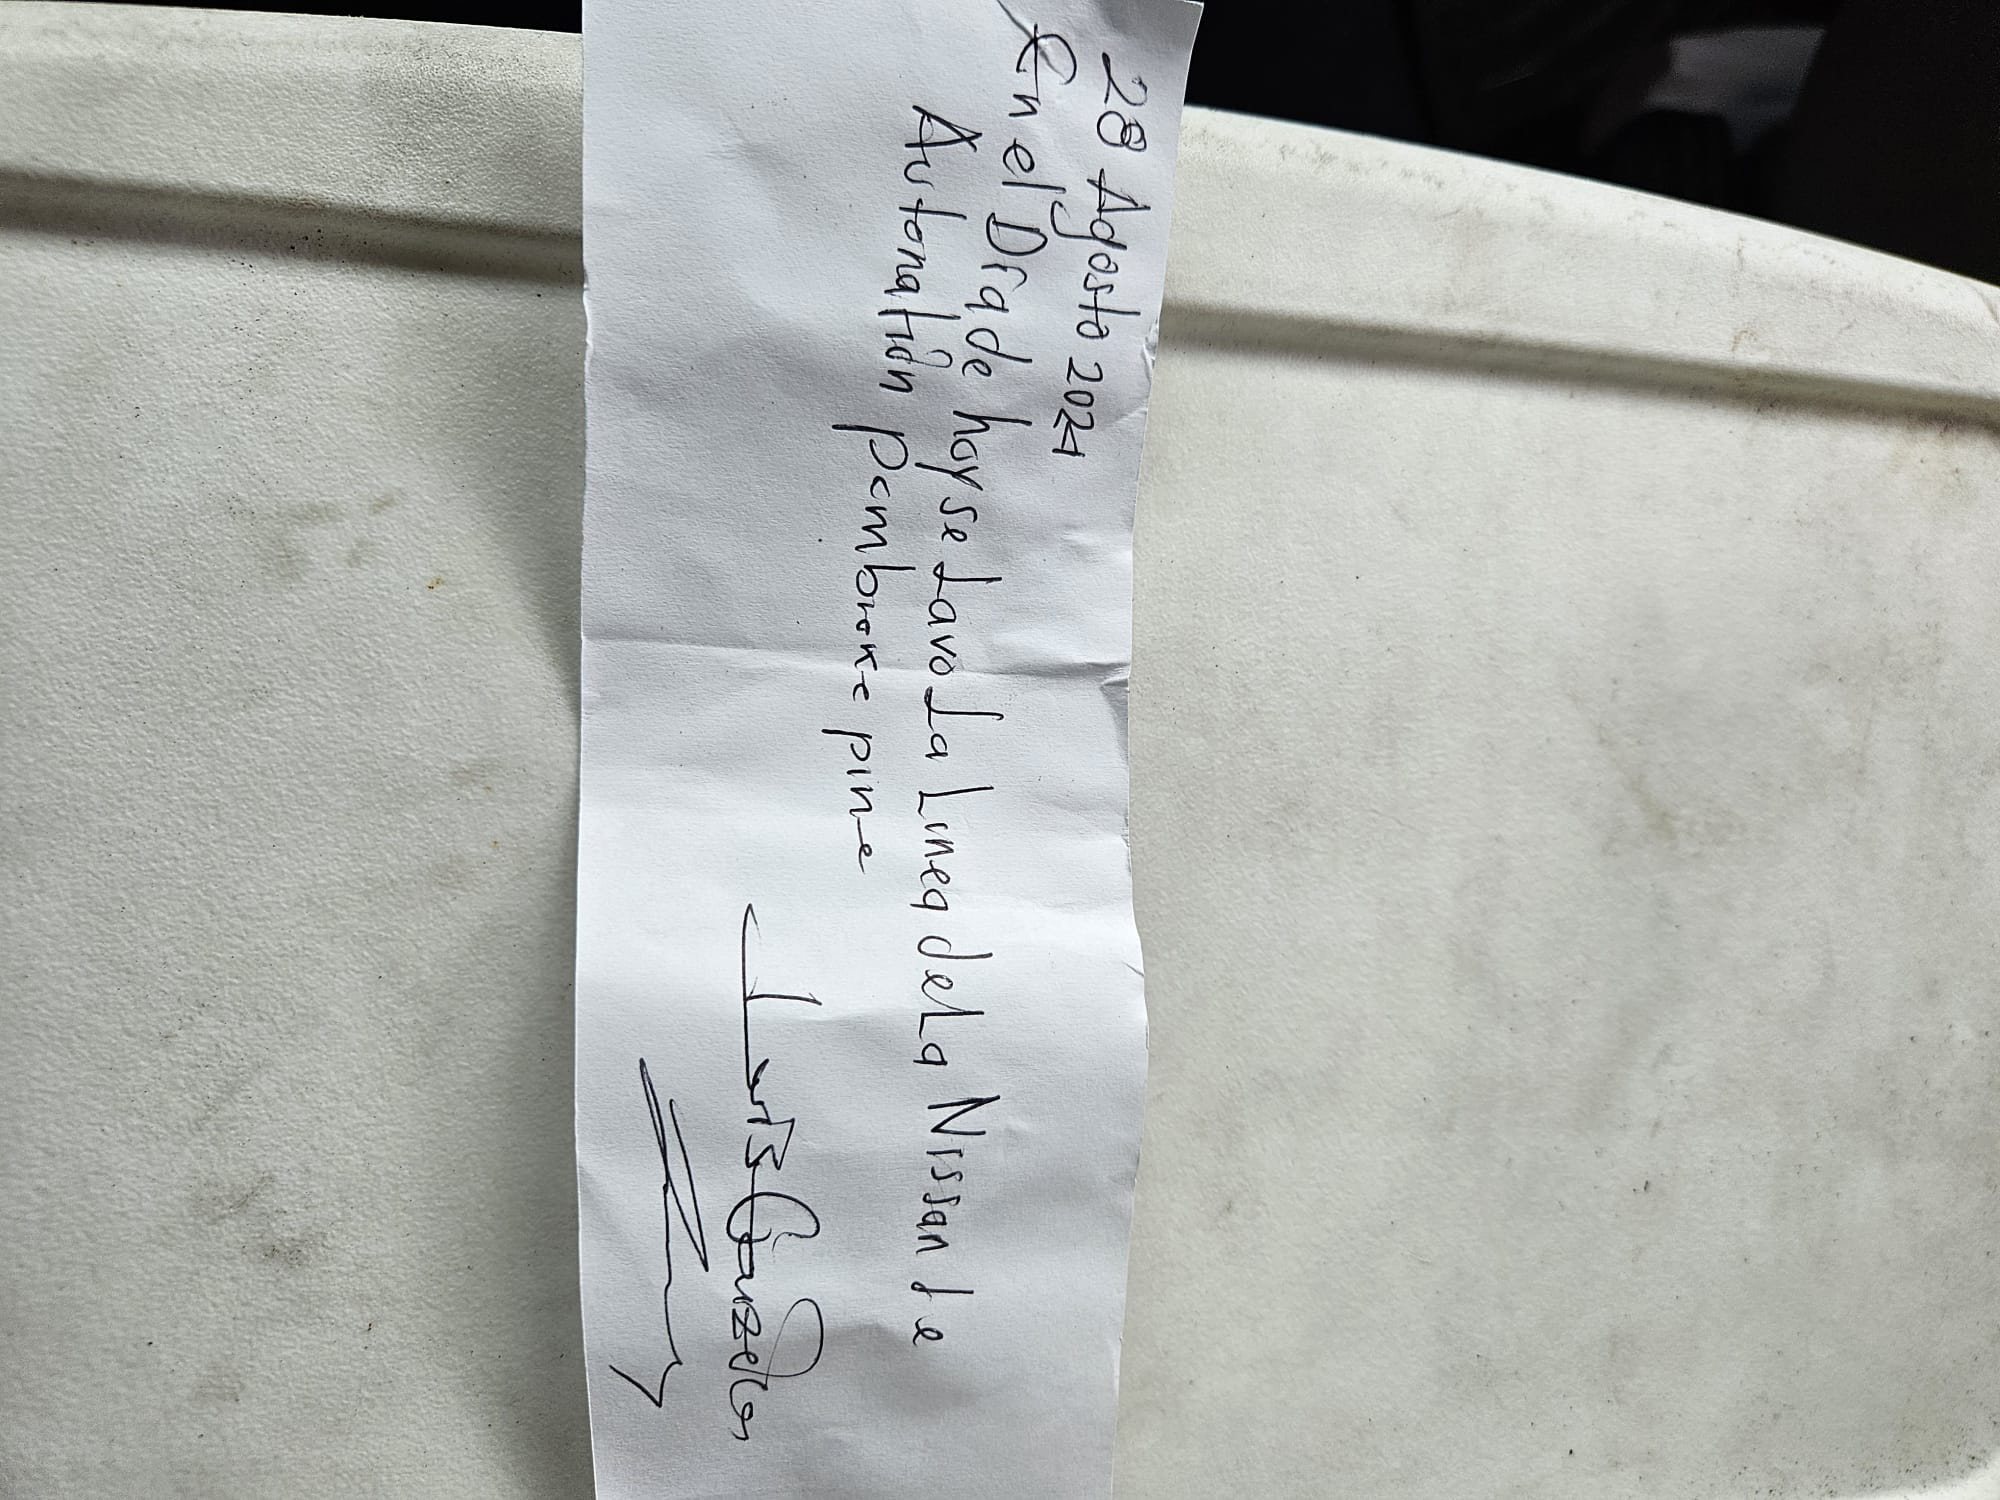 28 Agosto 2024
En el Día de hoy se Lavo La Linea de La Nissan de
Autonatión pembroke pine
Luis Gonzalez